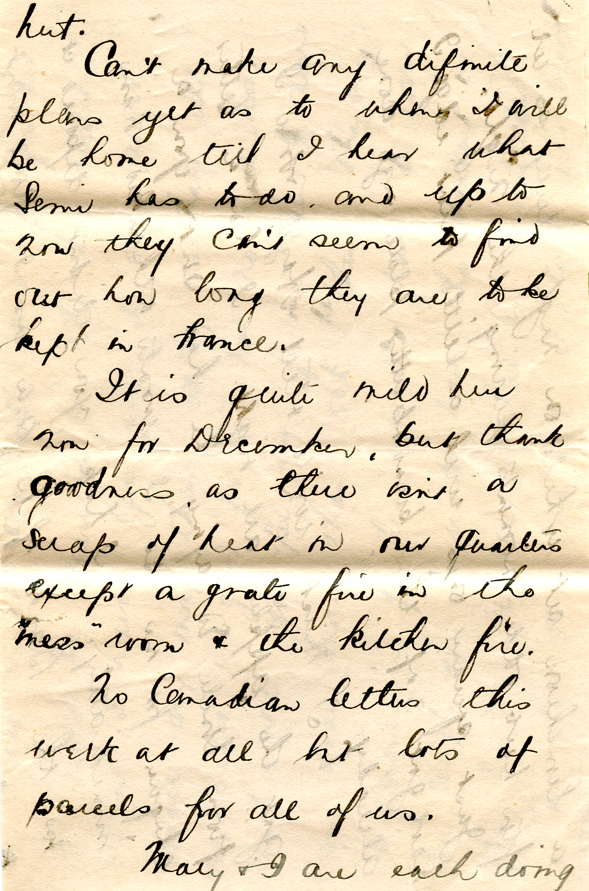 hut.
Can't make any difinite
plans yet as to when I will
be home till I hear what
has to do. and up to
now they can't seem to find
out how long they are to be
kept in France.
It is quite mild here
now for December, but thank
goodness, as there isn't a
scrap of heat in our quarters
except a grate fire in the
"mess" room & the kitchen fire.
No Canadian letters this
week at all but lots of
parcels for all of us.
Mary & I are each doing